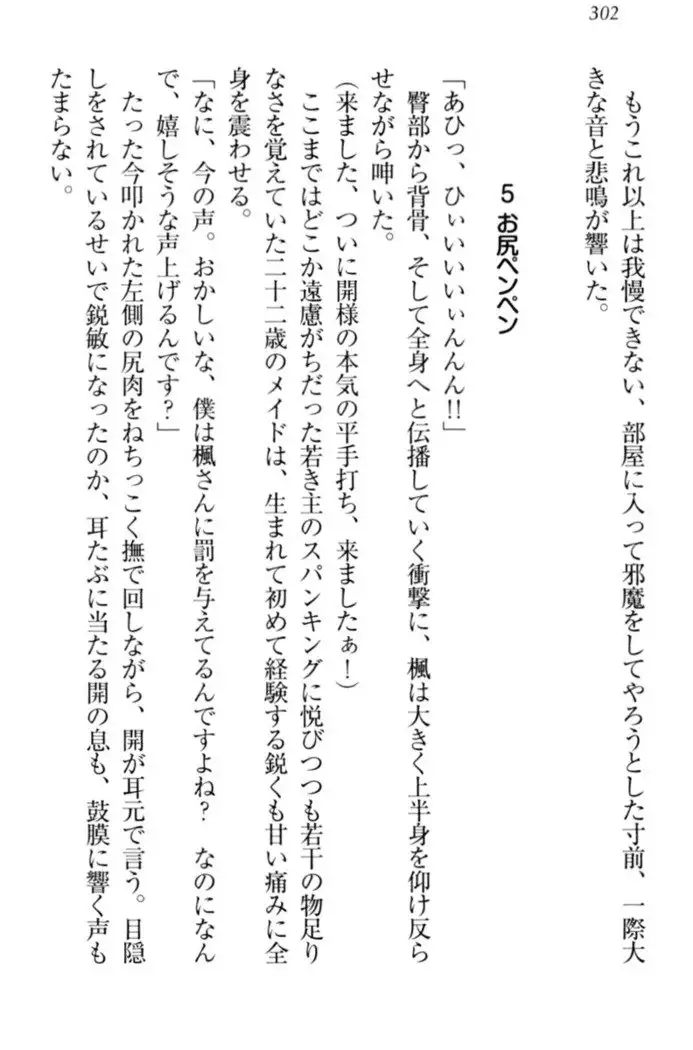 302
もうこれ以上は我慢できない、部屋に入って邪魔をしてやろうとした寸前、一際大
きな音と悲鳴が響いた。
5 お尻ペンペン
「あひっ、ひぃいいいぃんんん!!」
臀部から背骨、そして全身へと伝播していく衝撃に、楓は大きく上半身を仰け反ら
せながら呻いた。
(来ました、ついに開様の本気の平手打ち、来ましたぁ!)
ここまではどこか遠慮がちだった若き主のスパンキングに悦びつつも若干の物足り
なさを覚えていた二十二歳のメイドは、生まれて初めて経験する鋭くも甘い痛みに全
身を震わせる。
「なに、今の声。おかしいな、僕は楓さんに罰を与えてるんですよね? なのになん
で、嬉しそうな声上げるんです?」
たった今叩かれた左側の尻肉をねちっこく撫で回しながら、開が耳元で言う。目隠
しをされているせいで鋭敏になったのか、耳たぶに当たる開の息も、鼓膜に響く声も
たまらない。